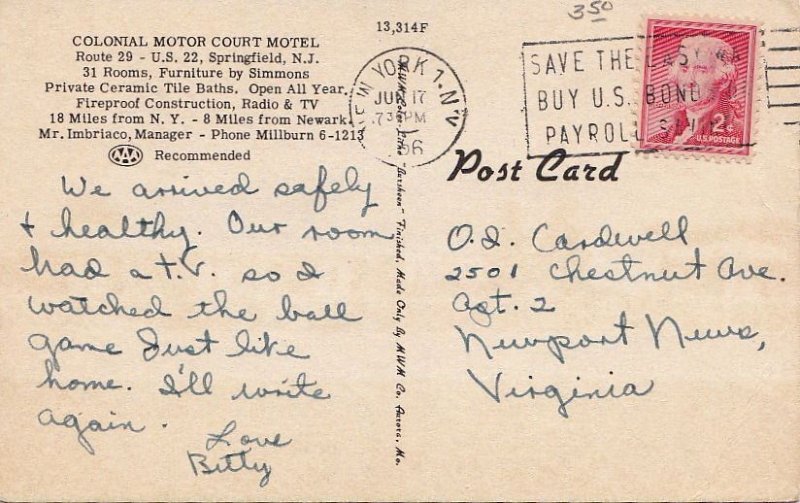 3.50
13,314F
COLONIAL MOTOR COURT MOTEL
Route 29 - U.S. 22, Springfield, N.J.
31 Rooms, Furniture by Simmons
Private Ceramic Tile Baths. Open All Year.
Fireproof Construction, Radio & TV
18 Miles from N. Y. - 8 Miles from Newark.
Mr. Imbriaco, Manager - Phone Millburn 6-1213
AAA Recommended
We arrived safely
& healthy. Our room
had a T.V. so I
watched the ball
game Just like
home. I'll write
again.
Love
Betty
"Sursheen" Finished, Made Only By MWM Co. Aurora, Mo.
NEW YORK 1. N.Y.
JUN 17
730 PM
1956
SAVE THE EASY
BUY U.S. BONDS
PAYROLL
2¢
U.S. POSTAGE
Post Card
O. I. Cardwell
2501 Chestnut Ave.
Apt. 2
Newport News,
Virginia